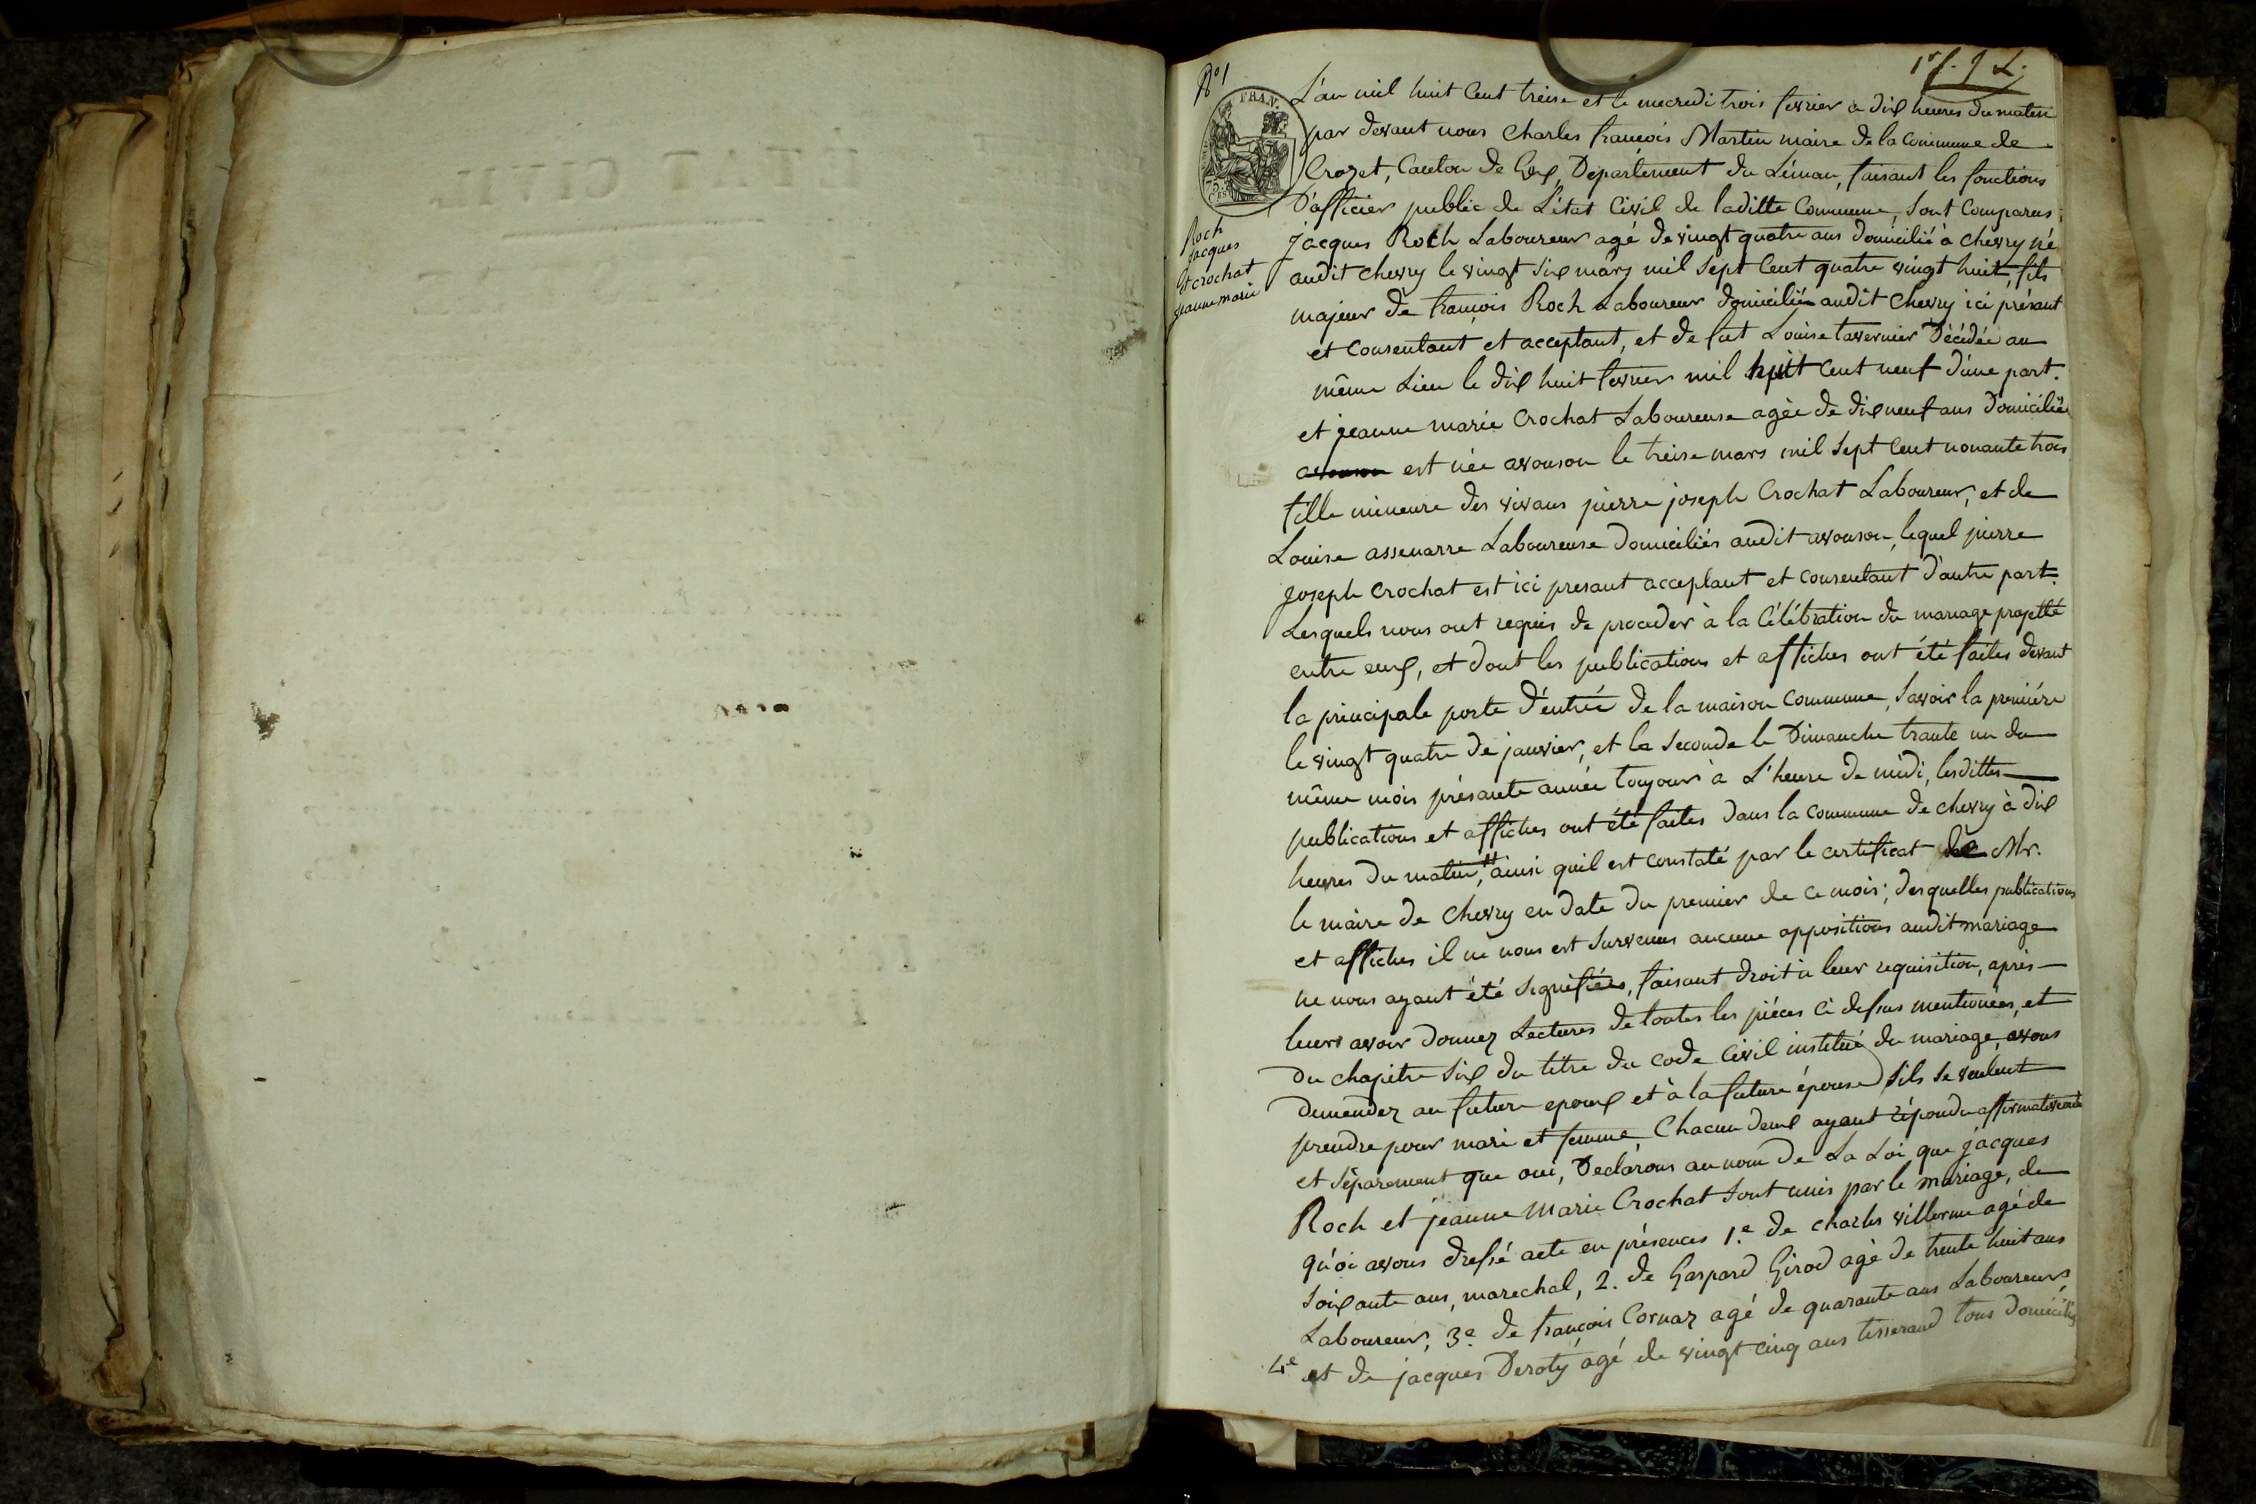 N.º 1
1.er f. J L.
FRAN.
75.
CEN.
Roch
jacques
et crochat
jeanne marie
L'an mil huit Cent treise et le mecredi trois fevrier à dix heures du matin
par devant nous Charles francois Martin maire de la Commune de
Crozet, Canton de Gex, Département du Léman, faisant les fonctions
D'officier public de L'état Civil de laditte Commune, Sont Comparus,
jacques Roch Laboureur agé de vingt quatre ans domicilié à chevry né
audit chevry le vingt six mars mil Sept Cent quatre vingt huit, fils
majeur de francois Roch Laboureur domicilié audit chevry ici présant
et Consentant et acceptant, et de fut Louise tavernier Décédée au
même Lieu le dix huit fevrier mil huit Cent neuf d'une part.
et jeanne marie Crochat Laboureuse agée de dix neuf ans domiciliée
avouson est née avouson le treise mars mil Sept Cent nonante trois
fille mineure des vivans pierre joseph Crochat Laboureur, et de
Louise assenarre Laboureuse domiciliés audit avouson, lequel pierre
joseph Crochat est ici presant acceptant et consentant d'autre part.
Lesquels nous ont requis de proceder à la Célébration du mariage projetté
entre eux, et dont les publications et affiches ont été faites devant
la principale porte d'entrée de la maison Commune, Savoir la première
le vingt quatre de janvier, et la Seconde le Dimanche trante un du
même mois présante année toujours à L'heure de midi, lesdittes
publications et affiches ont été faites dans la Commune de chevry à dix
heures du matin, ainsi quil est constaté par le certificat de Mr.
le maire de Chevry en date du premier de ce mois; desquelles publications
et affiches il ne nous est Survenus aucune oppositions audit mariage
ne nous ayant été Signifiées, faisant droit à leur requisition, après
leurs avoir donnez Lectures de toutes les pièces ci dessus mentionées, et
du chapitre Six du titre du code Civil institué du mariage, avons
demendez au future epoux et à la future épouse Sils Se veulent
prendre pour mari et femme, Chacun deux ayant répondu affirmativement
et Séparement que oui, Declarons au nom de La Loi que jacques
Roch et jeanne Marie Crochat Sont unis par le mariage, de
qu'oi avons dressé acte en présences 1.e de charles villerme agé de
Soixante ans, marechal, 2. de Gaspard Girod agé de trente huit ans
Laboureur, 3.e de francois Cornaz agé de quarante ans Laboureur,
4.e et de jacques Deroty agé de vingt cinq ans tisserand tous domiciliés